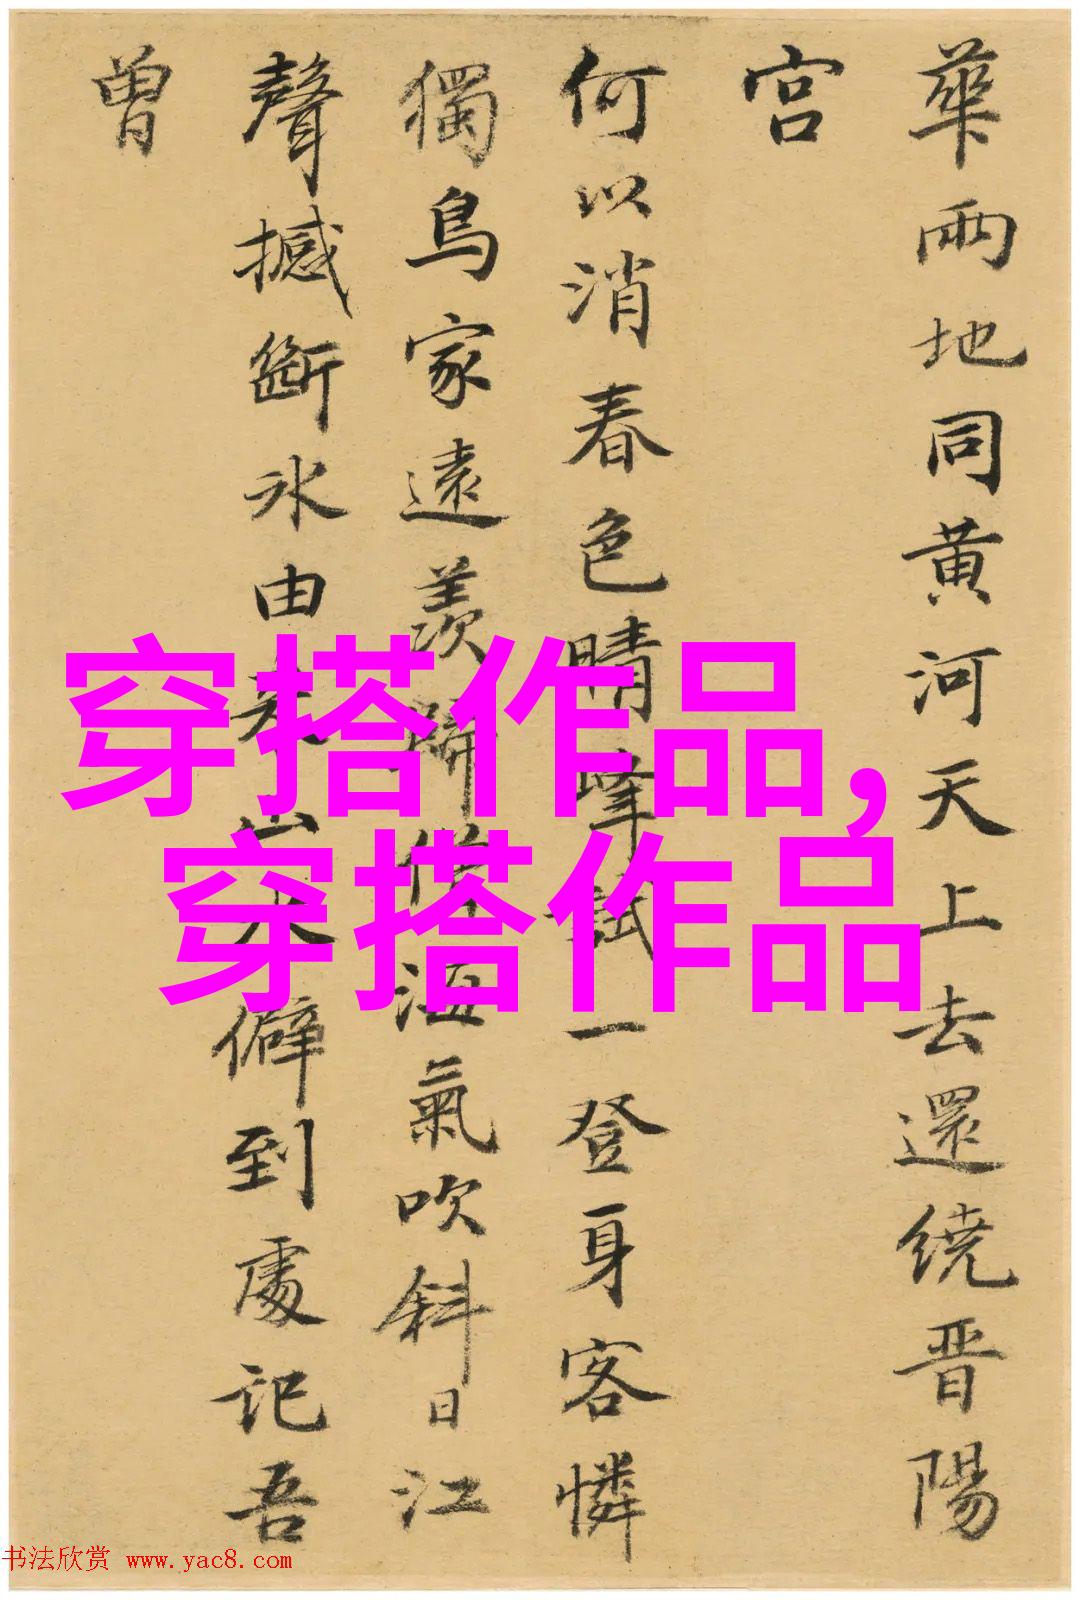 華兩地同黄河天上去還繞晋陽
宫
何以消春色晴峰試一登身客憐
獨鳥家遠羨歸僧海氣吹斜日江
聲撼斷氷由来山水僻到處記吾
曾
穿搭作品,
穿搭作品
书法欣赏 www.yac8.com